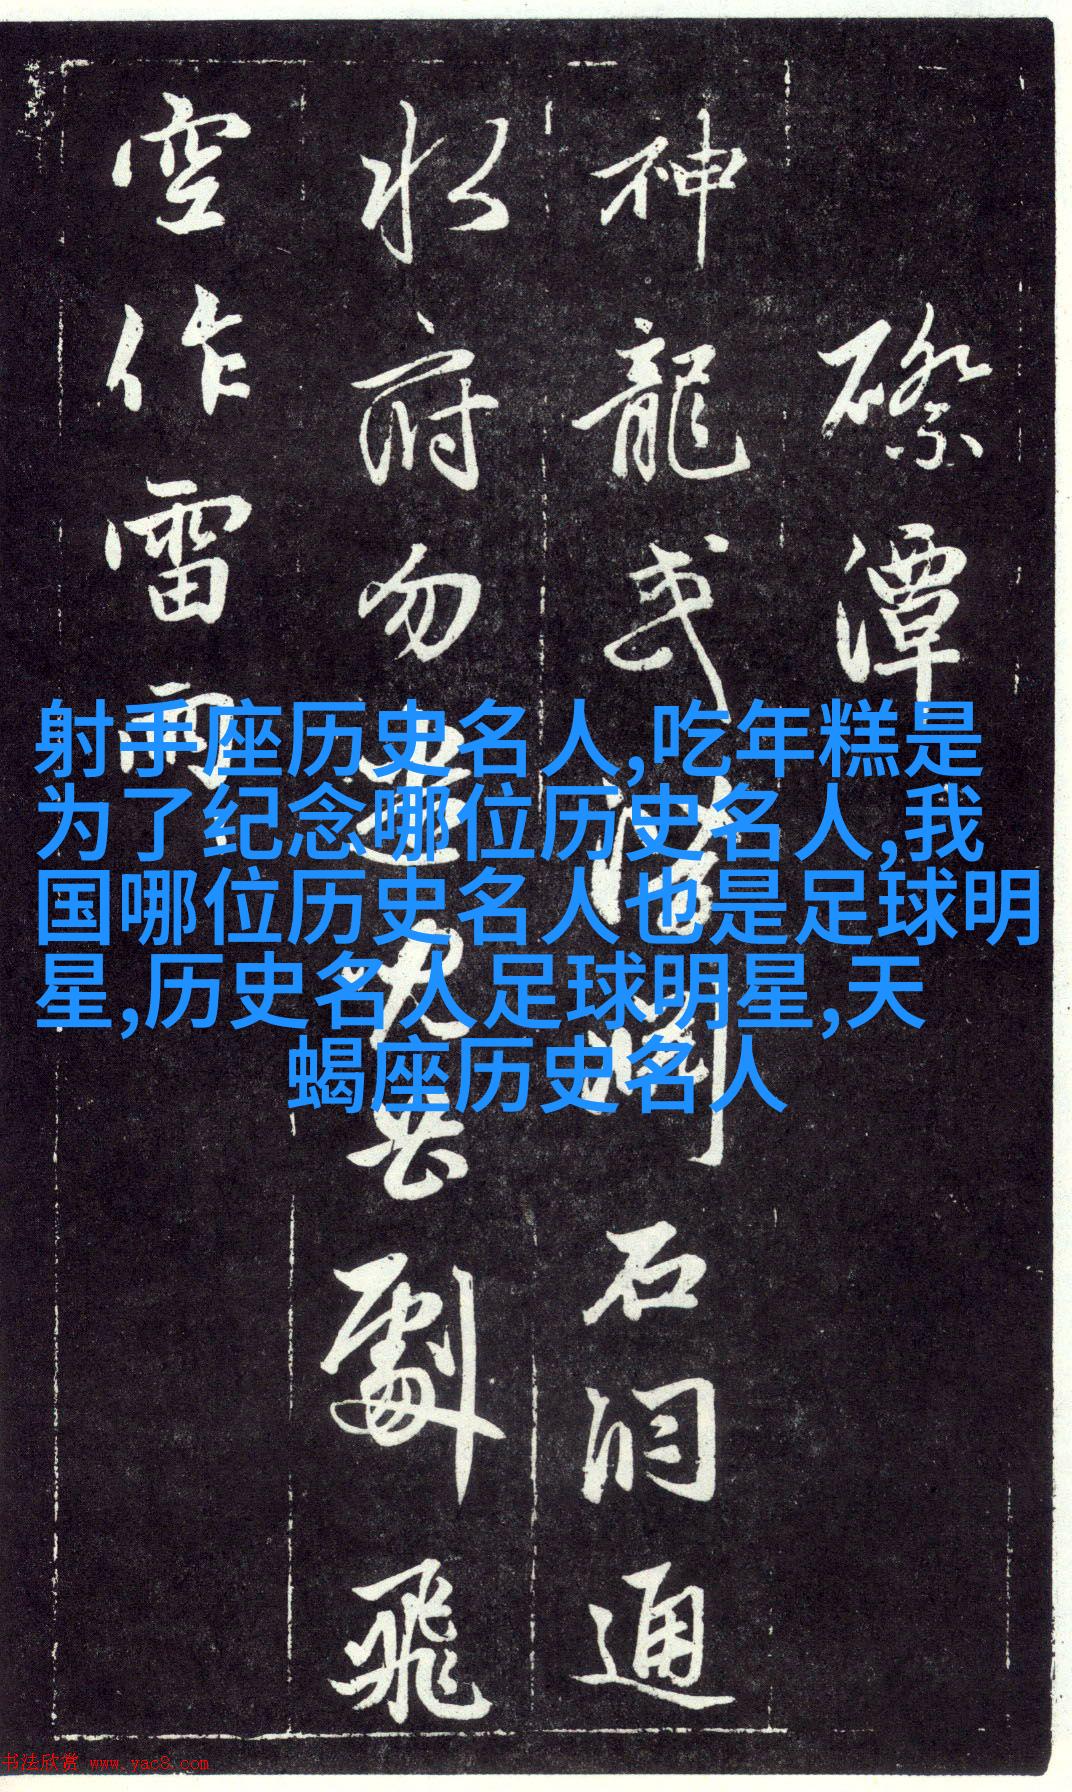 磜潭
神龍或石洞通
水府勿劇飛
空作雷雨
射手座历史名人,吃年糕是
为了纪念哪位历史名人,我
国哪位历史名人也是足球明
星,历史名人足球明星,天
蝎座历史名人
书法欣赏 www.yac8.com